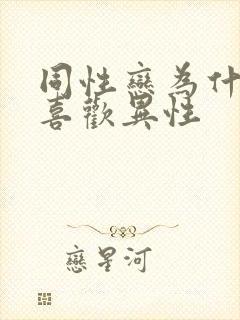 同性戀為什
喜歡異性
戀星河